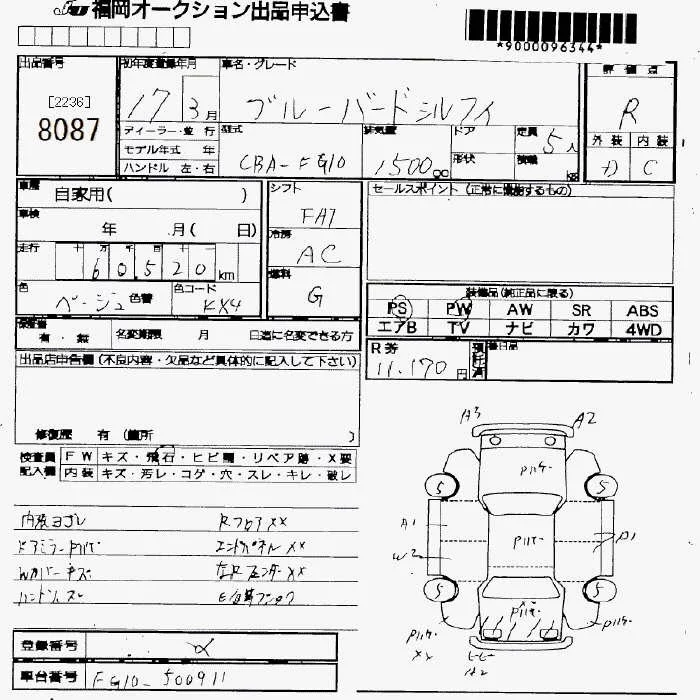 福岡オークション出品申込書
*9000096344*
出品番号
[2236]
8087
初年度登録年月
17 3月
車名・グレード
ブルーバードシルフィ
評価点
R
外装 内装
D C
ディーラー・並行
モデル年式 年
ハンドル 左・右
型式
CBA-FG10
排気量
1500cc
ドア
形状
定員
5人
積載
kg
車歴
自家用( )
車検
年 月( 日)
走行
十万千百十
60520km
色
ベージュ 色替
色コード
KX4
シフト
FAT
冷房
AC
燃料
G
セールスポイント (正常に機能するもの)
装備品(純正品に限る)
PS PW AW SR ABS
エアB TV ナビ カワ 4WD
保証書
有・無
名変期限 月 日迄に名変できる方
R券
11,170円
預託済
後日品
出品店申告欄(不良内容・欠品など具体的に記入して下さい)
修復歴 有 (箇所 )
検査員
記入欄
FW キズ・飛石・ヒビ・リペア跡・X要
内装 キズ・汚レ・コゲ・穴・スレ・キレ・破レ
内張ヨゴレ
ドアミラー
Wカバーキズ
ハンドルスレ
RフロアXX
エンドパネルXX
XX
A3
A2
5
5
5
5
A1
W2
A1
XX
A2
登録番号
車台番号
FG10-500911